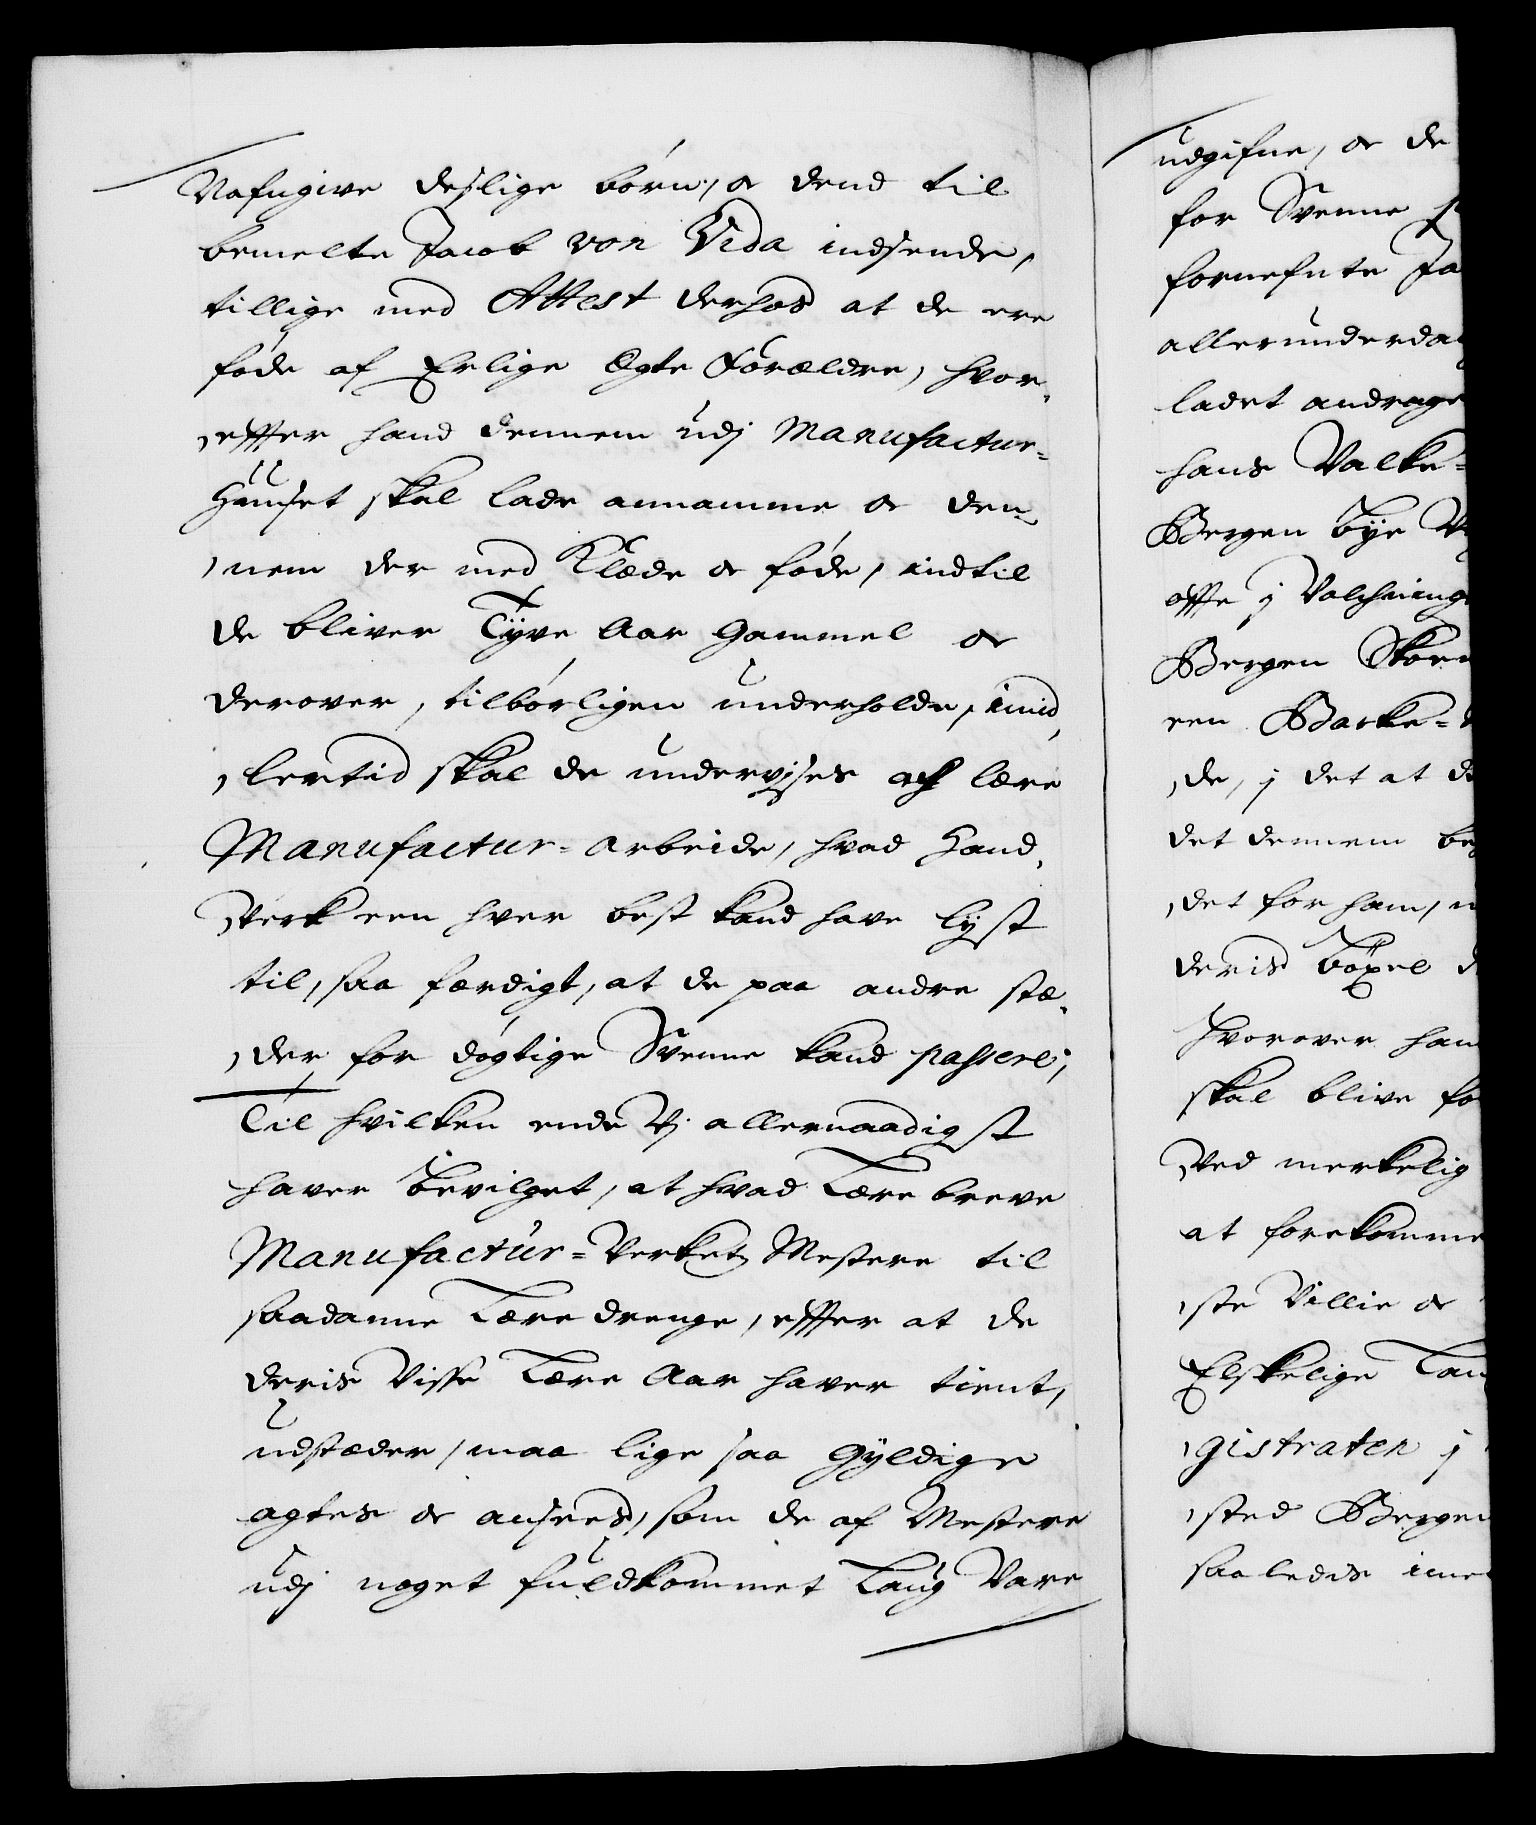 Nafngive deslige börn, oc dend til
bemelte Jacob von Vida indsende,
tillige med Attest derhos at de ere
föde af Erlige Egte Forældre, hvor-
effter hand dennem udj Manufactur-
Huuset skal lade annamme oc den-
nem der med Klæde oc föde, indtil
de bliver Tyve Aar Gammel oc
derover, tilbörligen underholde, imid-
lertid skal de undervjses at lære
Manufactur-arbeide, hvad Hand-
verk een hver best kand have lyst
til, saa færdigt, at de paa andre stæ-
der for dögtige Svenne kand passere;
Til hvilken ende Vj allernaadigst
haver bevilget, at hvad Lære breve
Manufactur-Verkets Mestere til
saadanne Lære drenge, effter at de
deris Visse Lære Aar haver tient,
udstæder, maa lige saa Gyldige
agtes oc ansees, som de af Mestere
udj noget fuldkommet Laug Vare
udgifne, oc de
for Svenne
fornefnte Ja
allerunderda
ladet andrage
hans Valke-
Bergen bye
offte j
Bergen
een Barke-
de, j det at
det dennem be
det for ham,
deris
hvorover han
skal blive fo
Ved merkelig
at forekomme
ste Villie oc
Elskelige Lan
gistraten j
sted Bergen
saaledis ime